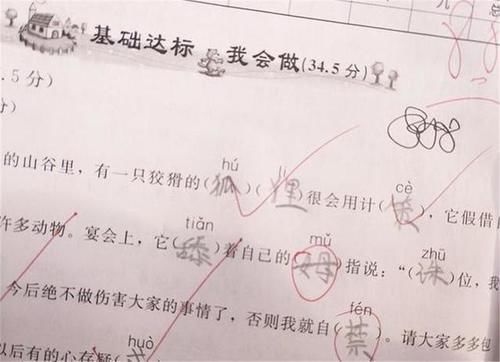 九
总
基础达标 我会做(34.5分)
.5分)
分)
hú lí cè
的山谷里，有一只狡猾的(狐)(狸)很会用计(策)，它假借
tiǎn mǔ zhū
许多动物。宴会上，它(舔)着自己的(母)指说：“(诛)位，我
fén
今后绝不做伤害大家的事情了，否则我就自(禁)。请大家多多包
huò
以后有的心存疑(